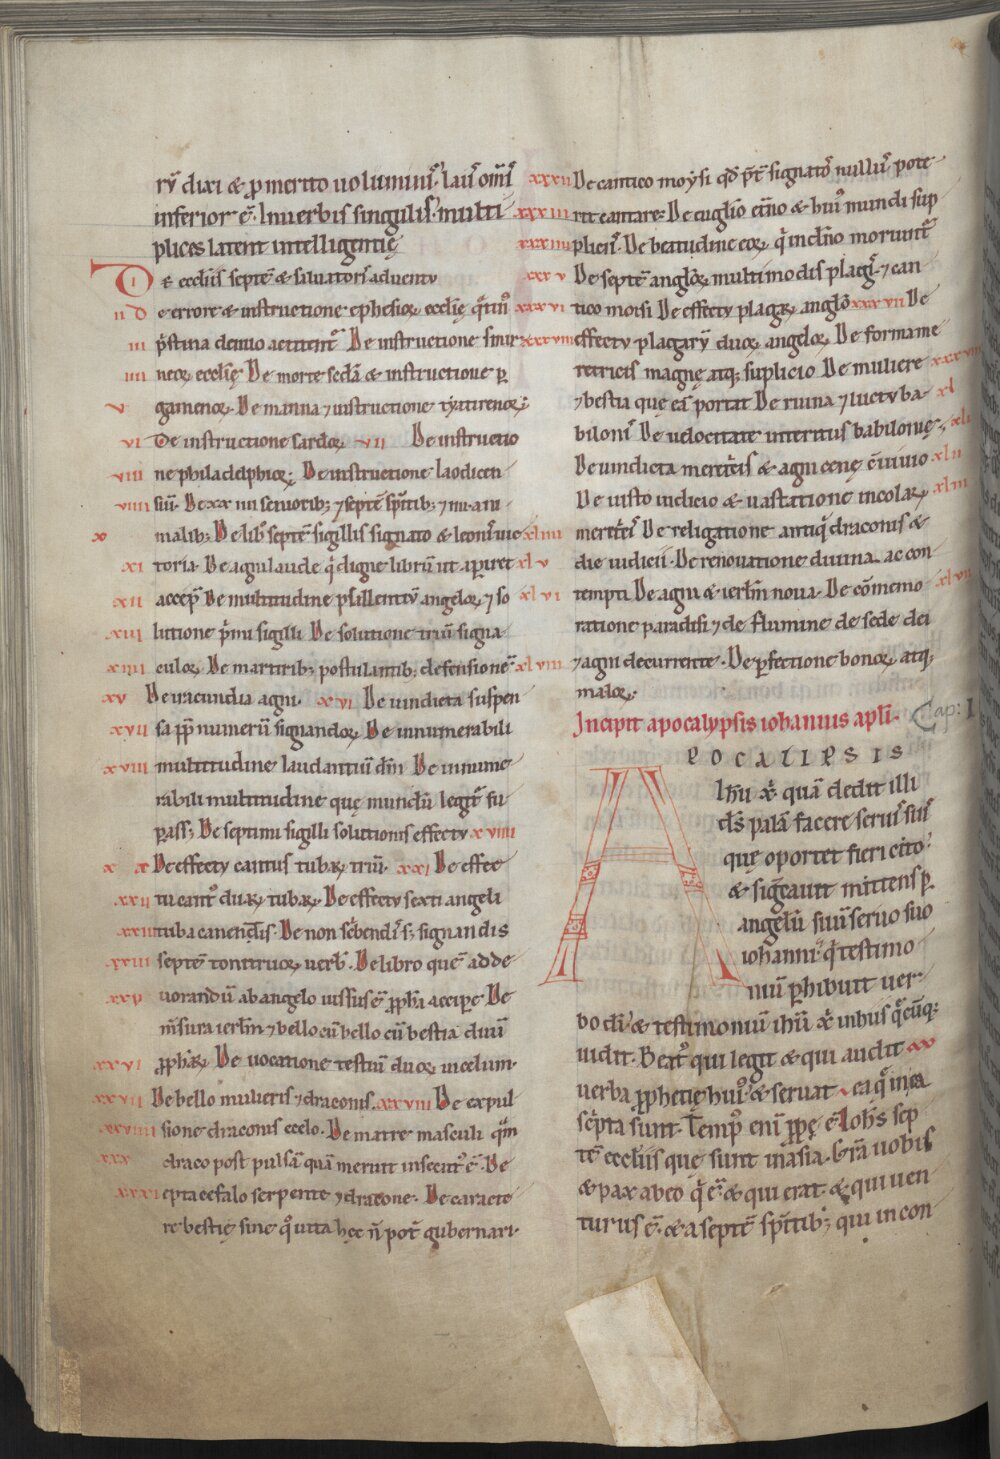 rũ dixi & p merito uoluminũ. lauſ omĩſ
inferior ẽ. In uerbis singulis multi
plices latent intelligentię
I De eccliis septẽ & saluatoris aduentu
II De errore & instructione ephesioꝝ ecclię
III pristina denuo Be instructione smir
IIII neoꝝ ecclię De morte & instructione ꝑ
V gamenoꝝ. De manna ⁊ instructione tyatirenoꝝ
VI De instructione sardoꝝ VII De instructio
VIII ne philadelphioꝝ. De instructione laodicen
VIIII siũ. De xx IIII senioribꝫ ⁊ septẽ sp̃itibꝫ ⁊ IIII ani
X malibꝫ De lib septẽ sigillis signato & leonis uic
XI toria. De agni laude q̇ digne librũ ut aꝑiret
XII accep̃ De multitudine psillentiũ angeloꝝ ⁊ so
XIII lutione p̃mi sigilli De solutione triũ signa
XIIII culoꝝ. De martiribꝫ postulantibꝫ defensionẽ
XV De iracundia agni. XVI De uindicta suspen
XVII sa ꝓp̃ numerũ signandoꝝ De innumerabili
XVIII multitudine laudantiũ dm̃ De innume
rabili multitudine quę mundũ legit
De septimi sigilli solutionis effectu XVIIII
XX De effectu cantus tubaꝝ triũ. XXI De effec
XXII tu cant duaꝝ tubaꝝ. De effectu sexti angeli
XXIII tuba canentis. De non scribendis signandis
XXIIII septẽ tonitruoꝝ uerb̃. De libro quẽ ad de
XXV uorandũ ab angelo iussus ẽ ꝓphã accipe De
m̃sura ierlm̃ ⁊ bello cũ bello cũ bestia duũ
XXVI ꝓphaꝝ De uocatione testiũ duoꝝ in celum.
XXVII De bello mulieris ⁊ draconis. XXVIII De expul
XXVIIII sione draconis e celo. De matre masculi qm̃
XXX draco post pulsã quã merint insecut ẽ. De
XXXI cepta cefalo serpente ⁊ dracone. De caracte
re bestię sine q̊ uita hęc ñ pot̃ gubernari.
XXXII De cantico moẏsi qd̃ p̃t signatoꝝ nullus pote
XXXIII rit cantare. De euglio etñno & huiꝰ mundi sup
XXXIIII pliciis. De beatitudine eoꝝ q̇ in dño moriunt̃
XXXV De septẽ angloꝝ multimodis plagis. ⁊ can
XXXVI tico moisi De effectu plagaꝝ angloꝝ XXXVII De
XXXVIII effectu plagaꝝ duoꝝ angeloꝝ. De forma me
retricis magnę atqꝫ suplicio De muliere XXXVIIII
⁊ bestia que eã portat De ruina ⁊ luctu ba XL
bilonis De uelocitate interitus babilonię. XLI
De uindicta meretricis & agni cenę conuiuio XLII
De iusto iudicio & uastatione incolaꝝ XLIII
XLIIII meretricis De religatione antiqi draconis &
XLV die iudicii. De renouatione diuina. ac con
XLVI tempti De agni & ierlm̃ noua. De com̃emo XLVII
ratione paradisi ⁊ de flumine de sede dei
XLVIII ⁊ agni decurrente. De ꝑfectione bonoꝝ atqꝫ
maloꝝ.
Incipit apocalypsis iohannis apli. Cap: I
APOCALIPSIS
Ihũ xp̃i quã dedit illi
ds̃ palã facere seruis suis
quę oportet fieri cito.
& significauit mittens ꝑ
angelũ suũ seruo suo
iohanni. q̇ testimo
niũ ꝑhibuit uer
bo di. & testimoniũ ihũ xp̃i in his q̃cũqꝫ
uidit. Beatꝰ qui legit & qui audit
uerba ꝓphetię huiꝰ & seruat ea q̃ in ea
scripta sunt. Tempꝰ eni ꝓpę ẽ Iohs̃ sep
tẽ eccliis que sunt in asia. Grã uobis
& pax ab eo q̇ ẽ & qui erat. & qui uen
turus ẽ. & a septẽ sp̃itibꝫ. qui in con